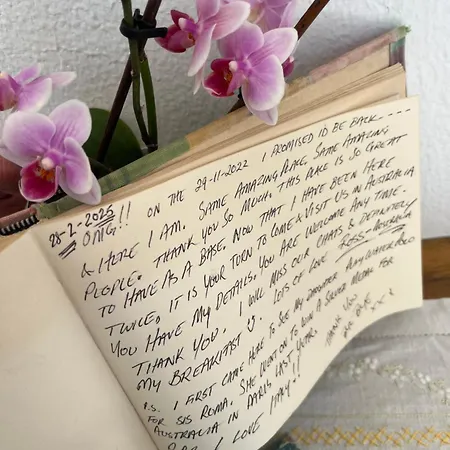 28-2-2025
OMG!! ON THE 29-11-2022 I PROMISED I'D BE BACK ----
& HERE I AM. SAME AMAZING PLACE, SAME AMAZING
PEOPLE. THANK YOU SO MUCH. THIS PLACE IS SO GREAT
TO HAVE AS A BASE. NOW THAT I HAVE BEEN HERE
TWICE, IT IS YOUR TURN TO COME & VISIT US IN AUSTRALIA
YOU HAVE MY DETAILS. YOU ARE WELCOME ANY TIME.
THANK YOU. I WILL MISS OUR CHATS & DEFINITELY
MY BREAKFAST ☺. LOTS OF LOVE ROSS - AUSTRALIA
P.S. I FIRST CAME HERE TO SEE MY DAUGHTER PLAY WATER POLO
FOR SIS ROMA. SHE WENT ON TO WIN A SILVER MEDAL FOR
AUSTRALIA IN PARIS LAST YEAR.
I LOVE ITALY!!
THANK YOU